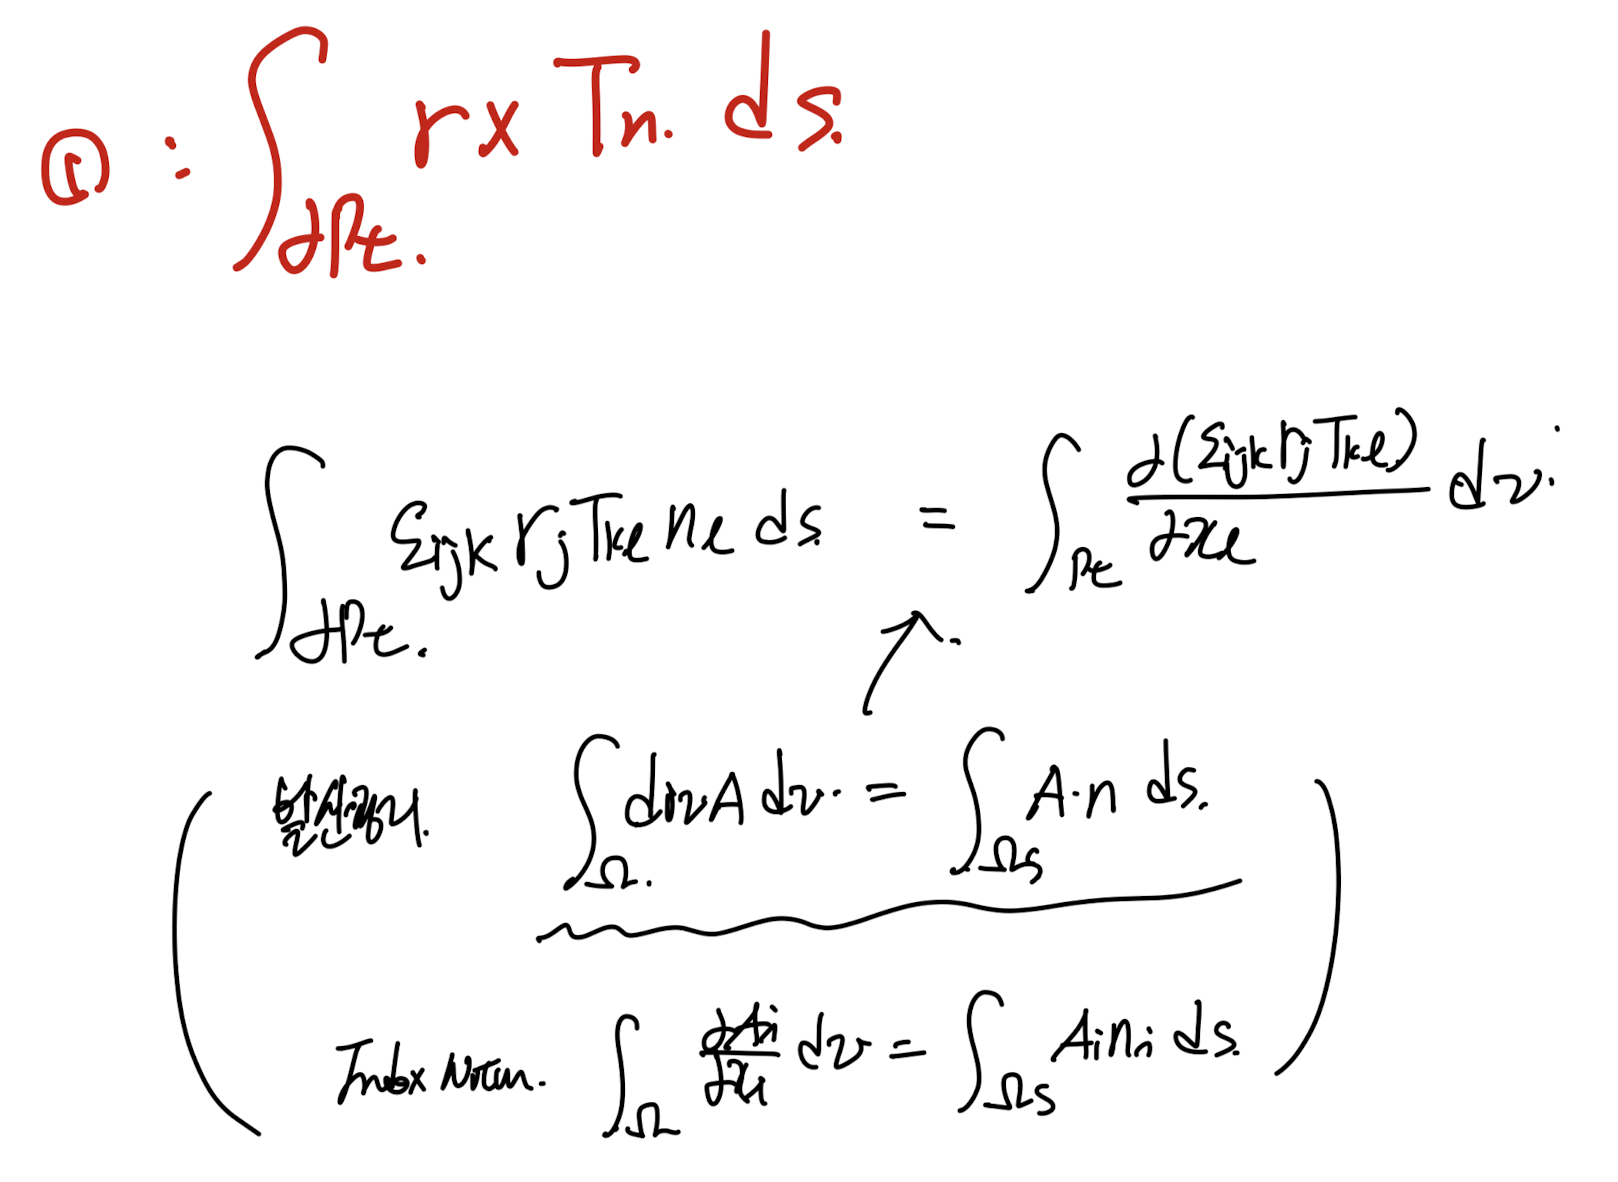 ① : ∫_{∂Pt.} r x Tn. ds.
∫_{∂Pt.} Σijk rj Tkl nl ds. = ∫_{Pt} ∂(Σijk rj Tkl)/∂xl dv.
발산정리. ∫_{Ω.} divA dv. = ∫_{Ωs} A·n ds.
Index Notn. ∫_{Ω} ∂Ai/∂xi dv = ∫_{Ωs} Ai ni ds.